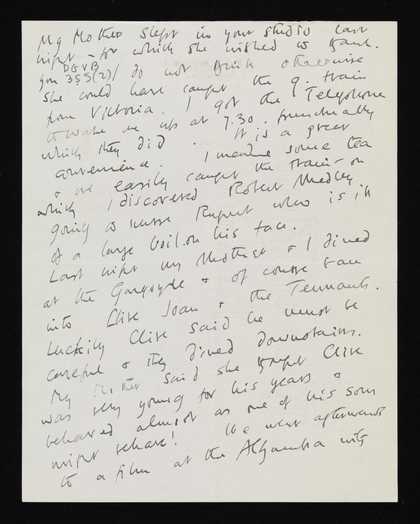 My Mother slept in your studio last
night - for which she wished to thank
you. I do not think otherwise
DGVB
355(2)
she could have caught the 9. train
from Victoria. I got the Telephone
to wake me up at 7.30. punctually
which they did. It is a great
convenience. I made some tea
& we easily caught the train - on
which I discovered Robert Medley
going to nurse Rupert who is ill
of a large boil on his face.
Last night my Mother & I dined
at the Gargoyle & of course ran
into Clive Joan & the Tennants.
Luckily Clive said he must be
careful & they dined downstairs.
My Mother said she thought Clive
was very young for his years &
behaved almost as one of his sons
might behave! We went afterwards
to a film at the Alhambra with